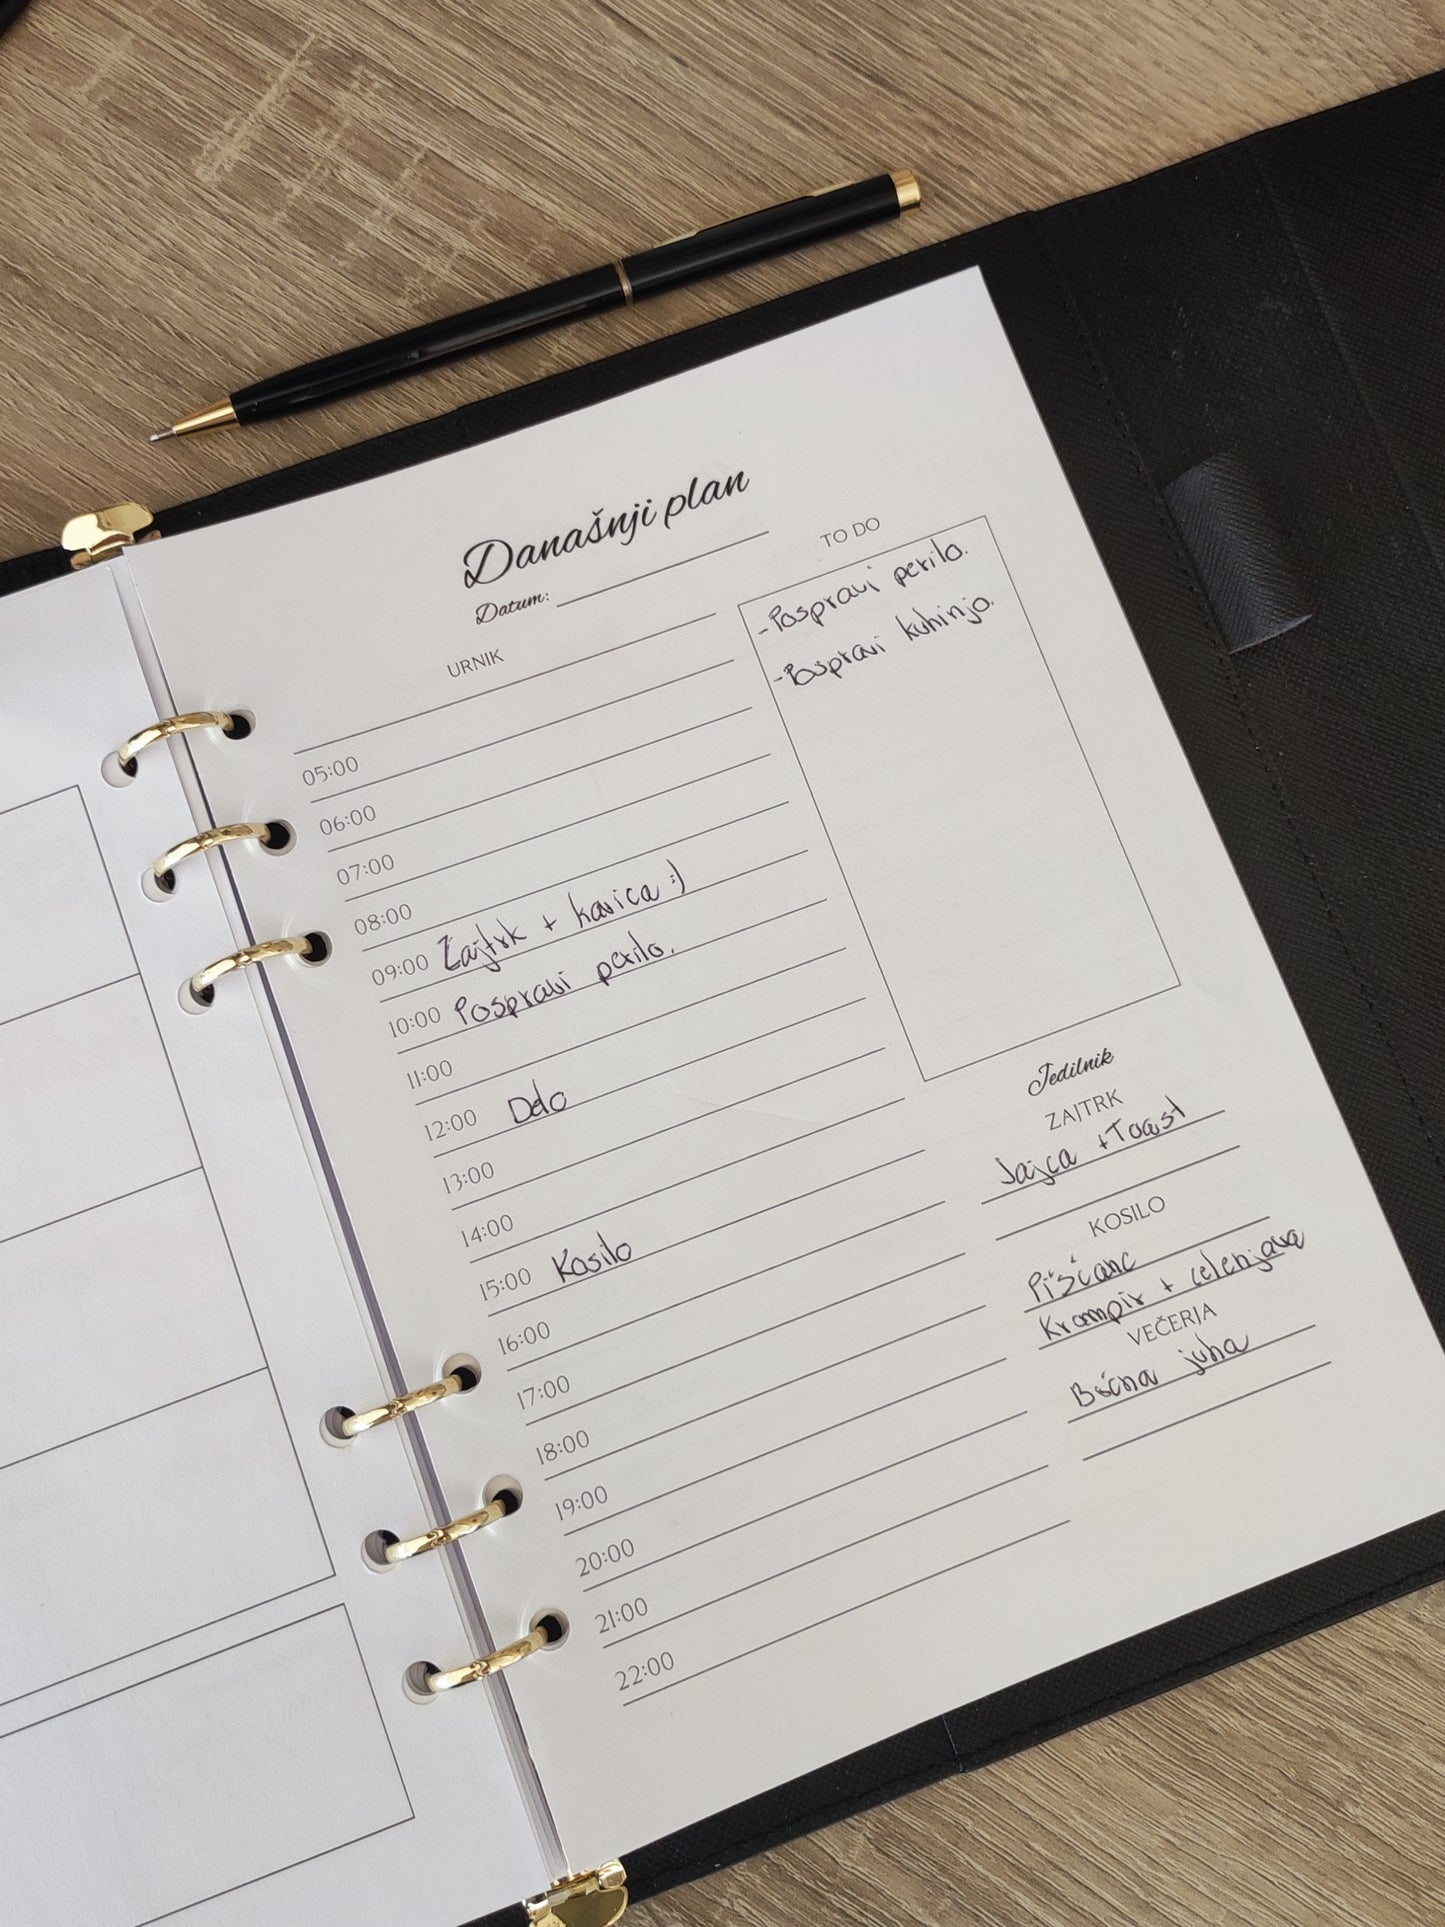 Današnji plan
Datum:
URNIK
05:00
06:00
07:00
08:00
09:00 Zajtrk + kavica :)
10:00 Pospravi perilo.
11:00
12:00 Delo
13:00
14:00
15:00 Kosilo
16:00
17:00
18:00
19:00
20:00
21:00
22:00
TO DO
-Pospravi perilo.
-Pospravi kuhinjo.
Jedilnik
ZAJTRK
Jajca + Toast
KOSILO
Piščanc
Krompir + zelenjava
VEČERJA
Bučna juha